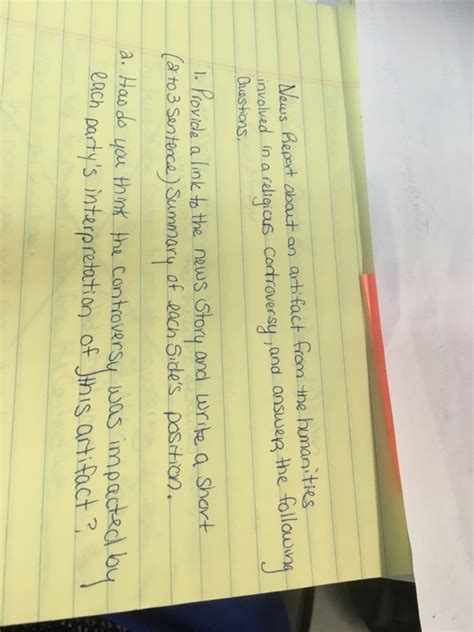 News Report about an artifact from the humanities
involved in a religious controversy, and answer the following
Questions.
1. Provide a link to the news story and write a short
(2 to 3 sentence) Summary of each side's position.
2. How do you think the controversy was impacted by
each party's interpretation of this artifact?